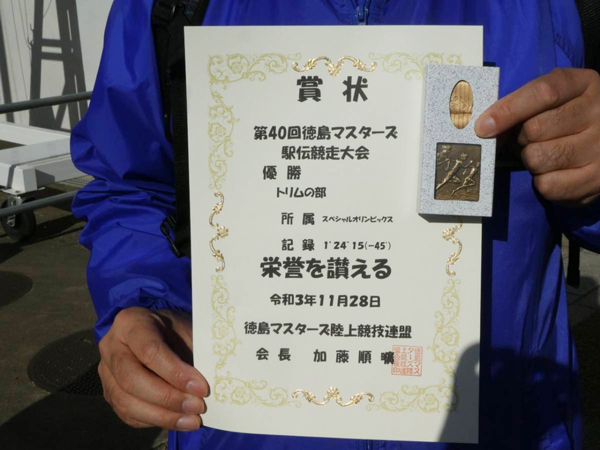 賞状
第40回徳島マスターズ
駅伝競走大会
優勝
トリムの部
所属 スペシャルオリンピックス
記録 1°24'15(-45')
栄誉を讃える
令和3年11月28日
徳島マスターズ陸上競技連盟
会長 加藤順